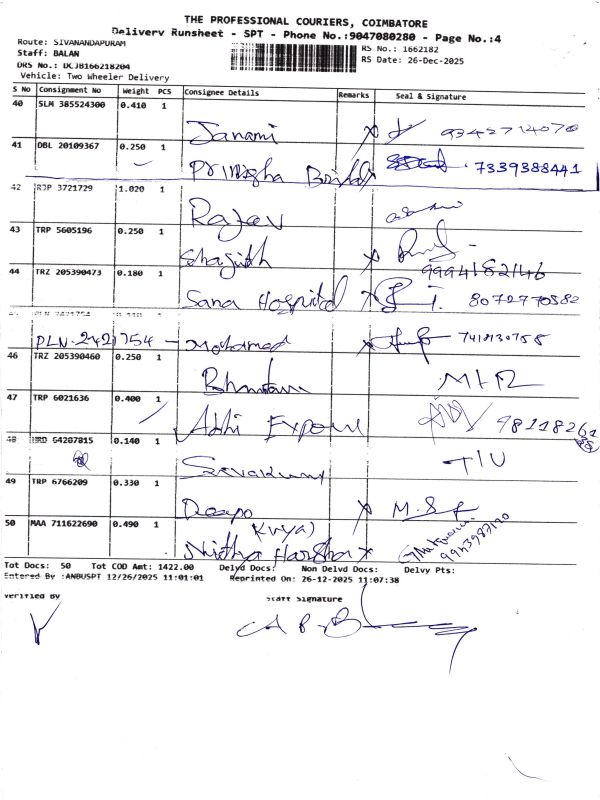 THE PROFESSIONAL COURIERS, COIMBATORE
Delivery Runsheet - SPT - Phone No.:9047080280 - Page No.:4
Route: SIVANANDAPURAM
RS No.: 1662182
Staff: BALAN
RS Date: 26-Dec-2025
DRS No.: DCJB166218204
Vehicle: Two Wheeler Delivery
S No Consignment No Weight PCS Consignee Details Remarks Seal & Signature
40 SLM 385524300 0.410 1
Janami 9342714070
41 DBL 20109367 0.250 1
7339388441
42 RJP 3721729 1.020 1
Rajev
43 TRP 5605196 0.250 1
Shajith
9994182146
44 TRZ 205390473 0.180 1
Sana Hospital 8072770582
PLN-2421754 - Mohamed 7418130758
46 TRZ 205390460 0.250 1
47 TRP 6021636 0.400 1
Abhi
48 HRD 64207815 0.140 1
49 TRP 6766209 0.330 1
50 MAA 711622690 0.490 1
Tot Docs: 50 Tot COD Amt: 1422.00 Delyd Docs: Non Delvd Docs: Delvy Pts:
Entered By :ANBUSPT 12/26/2025 11:01:01 Reprinted On: 26-12-2025 11:07:38
Verified By Staff Signature